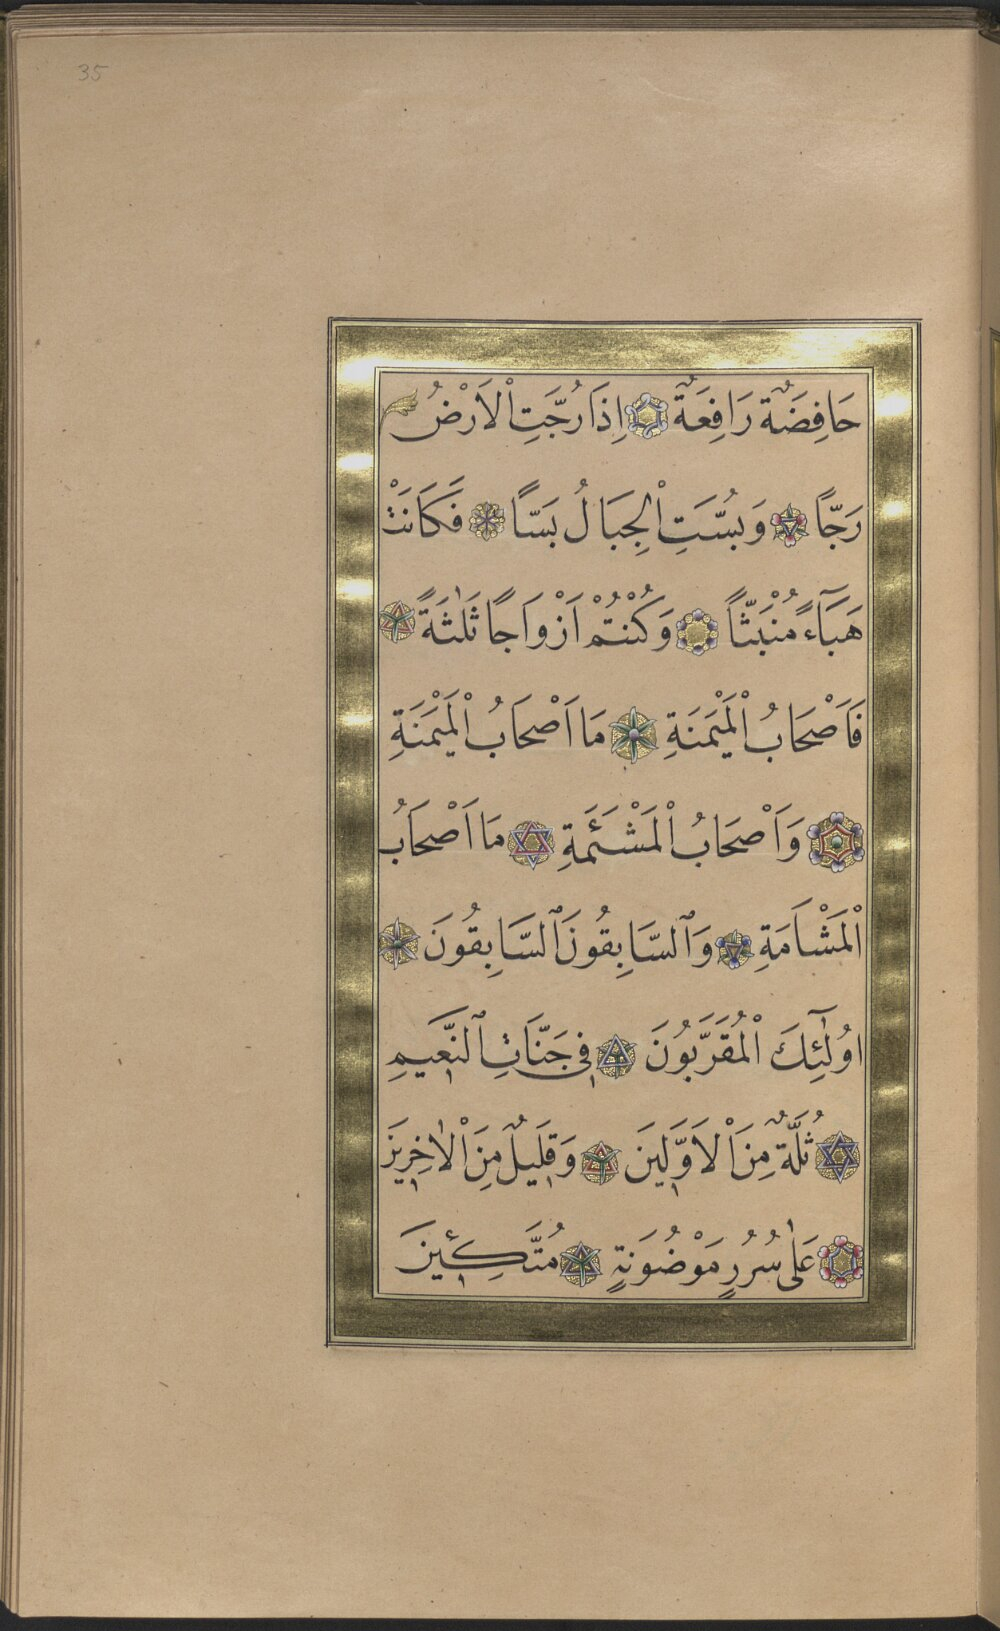 35
خَافِضَةٌ رَافِعَةٌ اِذَا رُجَّتِ الْاَرْضُ
رَجًّا وَبُسَّتِ الْجِبَالُ بَسًّا فَكَانَتْ
هَبَآءً مُنْبَثًّا وَكُنْتُمْ اَزْوَاجًا ثَلٰثَةً
فَاَصْحَابُ الْمَيْمَنَةِ مَا اَصْحَابُ الْمَيْمَنَةِ
وَاَصْحَابُ الْمَشْئَمَةِ مَا اَصْحَابُ
الْمَشْاَمَةِ وَالسَّابِقُونَ السَّابِقُونَ
اُولٰٓئِكَ الْمُقَرَّبُونَ فِى جَنَّاتِ النَّعِيمِ
ثُلَّةٌ مِنَ الْاَوَّلِينَ وَقَلِيلٌ مِنَ الْاٰخِرِينَ
عَلٰى سُرُرٍ مَوْضُونَةٍ مُتَّكِئِينَ